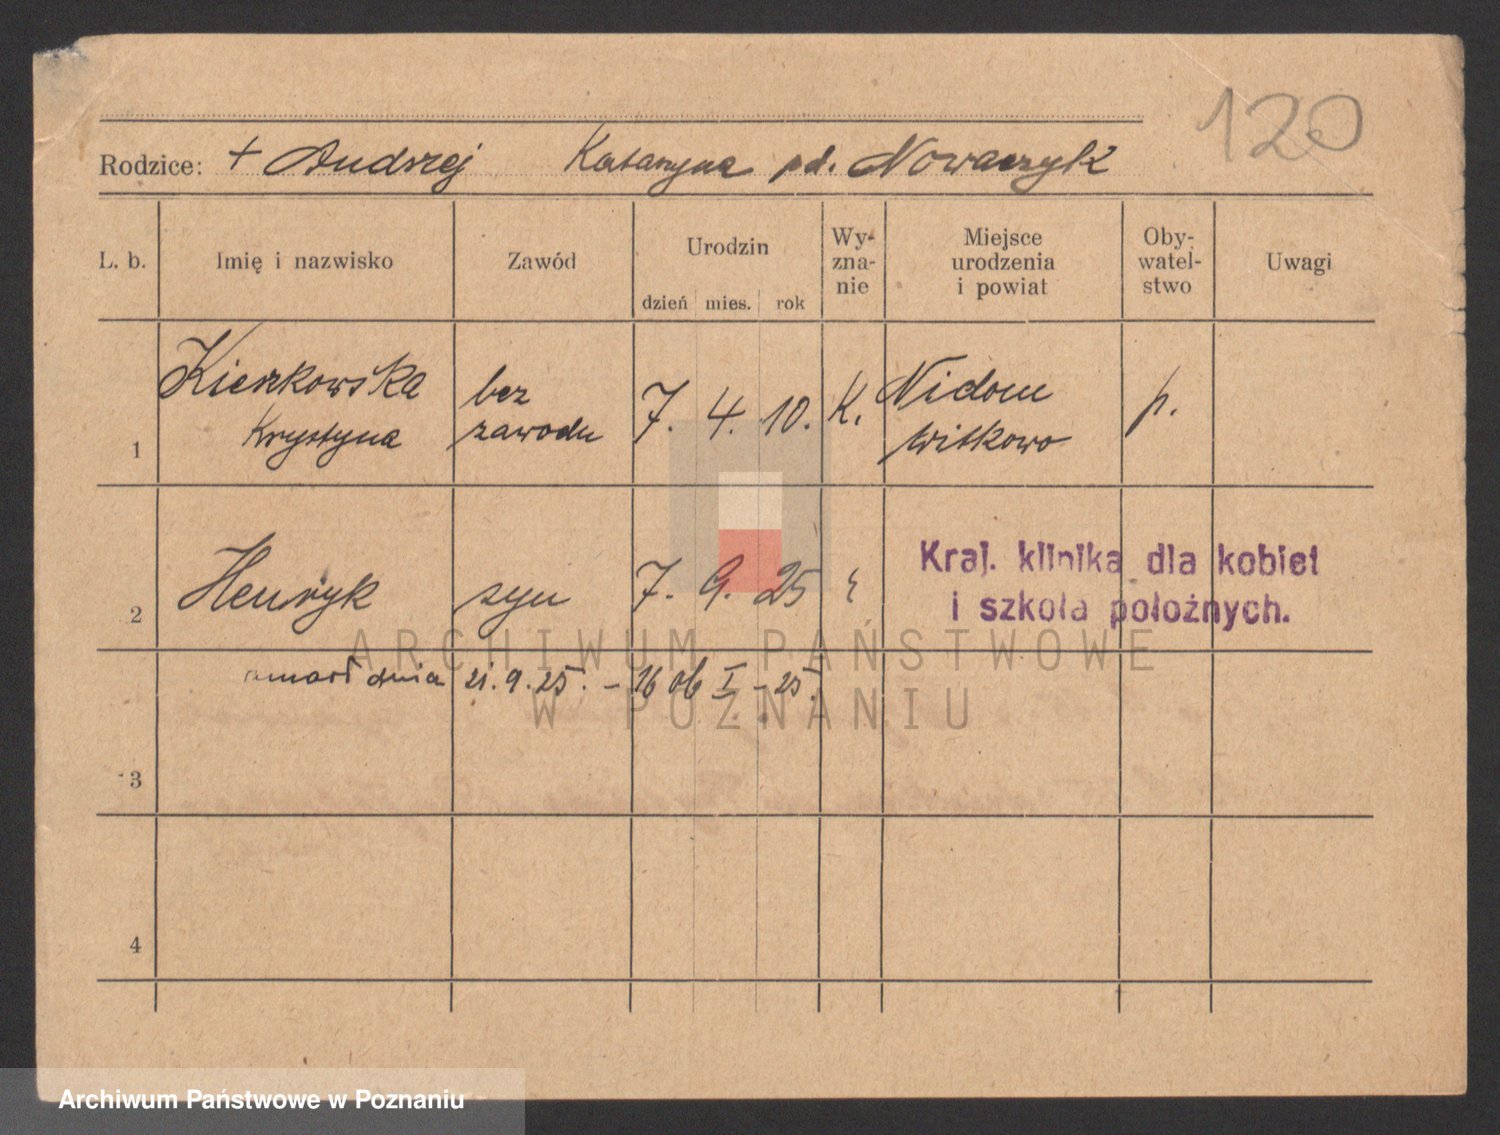 120
Rodzice: + Andrzej Katarzyna pd. Nowaczyk
L. b. Imię i nazwisko Zawód Urodzin Wy-zna-nie Miejsce urodzenia i powiat Oby-watel-stwo Uwagi
dzień mies. rok
1 Kieszkowska Krystyna bez zawodu 7. 4. 10. K. Nidom Witkowo p.
2 Henryk syn 7. 9. 25
Kraj. klinika dla kobiet
i szkoła położnych.
umarł dnia 21. 9. 25. – 16 ob I – 25.
ARCHIWUM PAŃSTWOWE
W POZNANIU
3
4
Archiwum Państwowe w Poznaniu